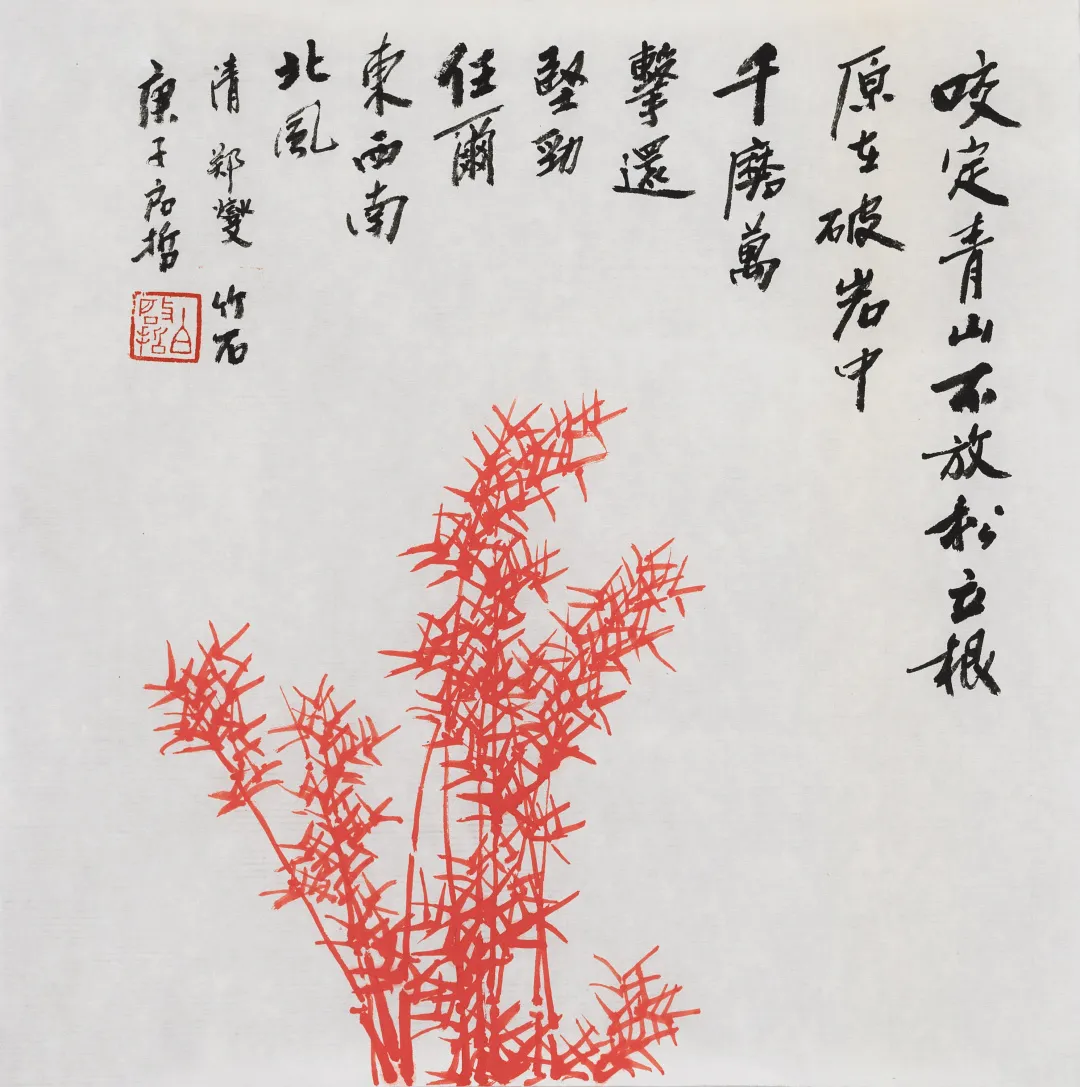 咬定青山不放松立根
原在破岩中
千磨萬
擊還
堅勁
任爾
東西南
北風
清 郑燮 竹石
庚子启哲